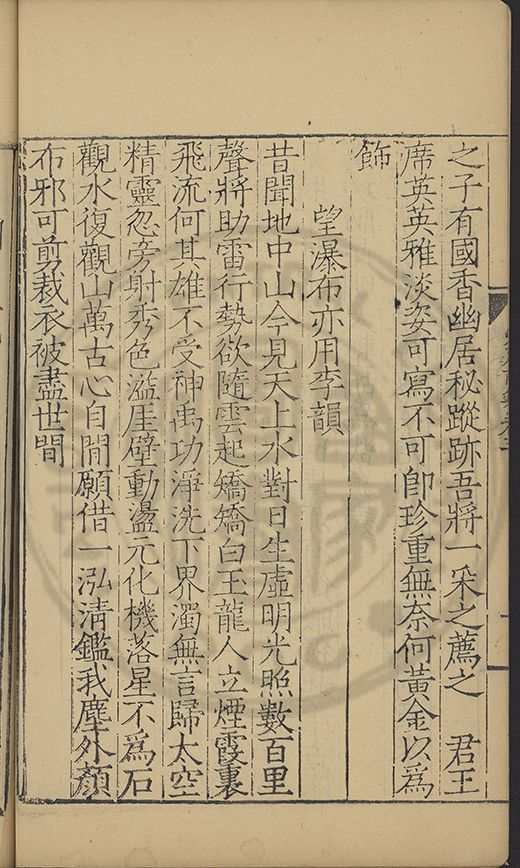 之子有國香幽居秘蹤跡吾將一采之薦之　君王
席英英雅淡姿可寫不可即珍重無奈何黃金以為
飾
望瀑布亦用李韻
昔聞地中山今見天上水對日生虛明光照數百里
聲將助雷行勢欲隨雲起矯矯白玉龍人立煙霞裏
飛流何其雄不受神禹功淨洗下界濁無言歸太空
精靈忽旁射秀色溢厓壁動盪元化機落星不為石
觀水復觀山萬古心自閒願借一泓清鑑我塵外顏
布邪可剪裁衣被盡世間